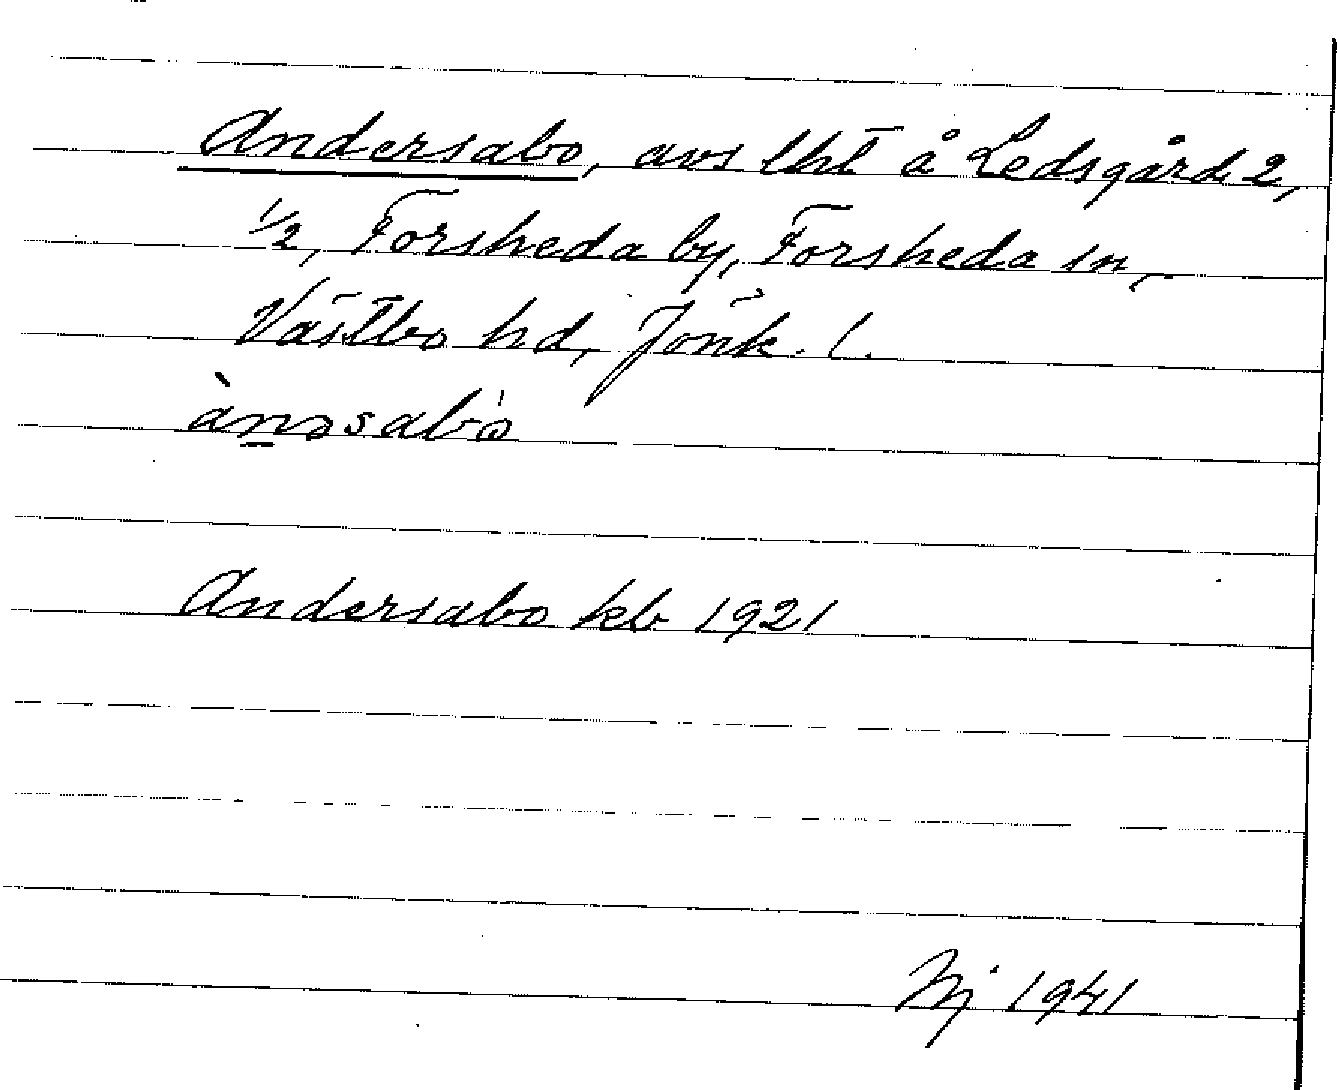 Andersabo, avs lht å Ledsgård 2,
1/2, Forsheda by, Forsheda sn,
Västbo hd, Jönk. l.
Andersabo kb 1921
1941